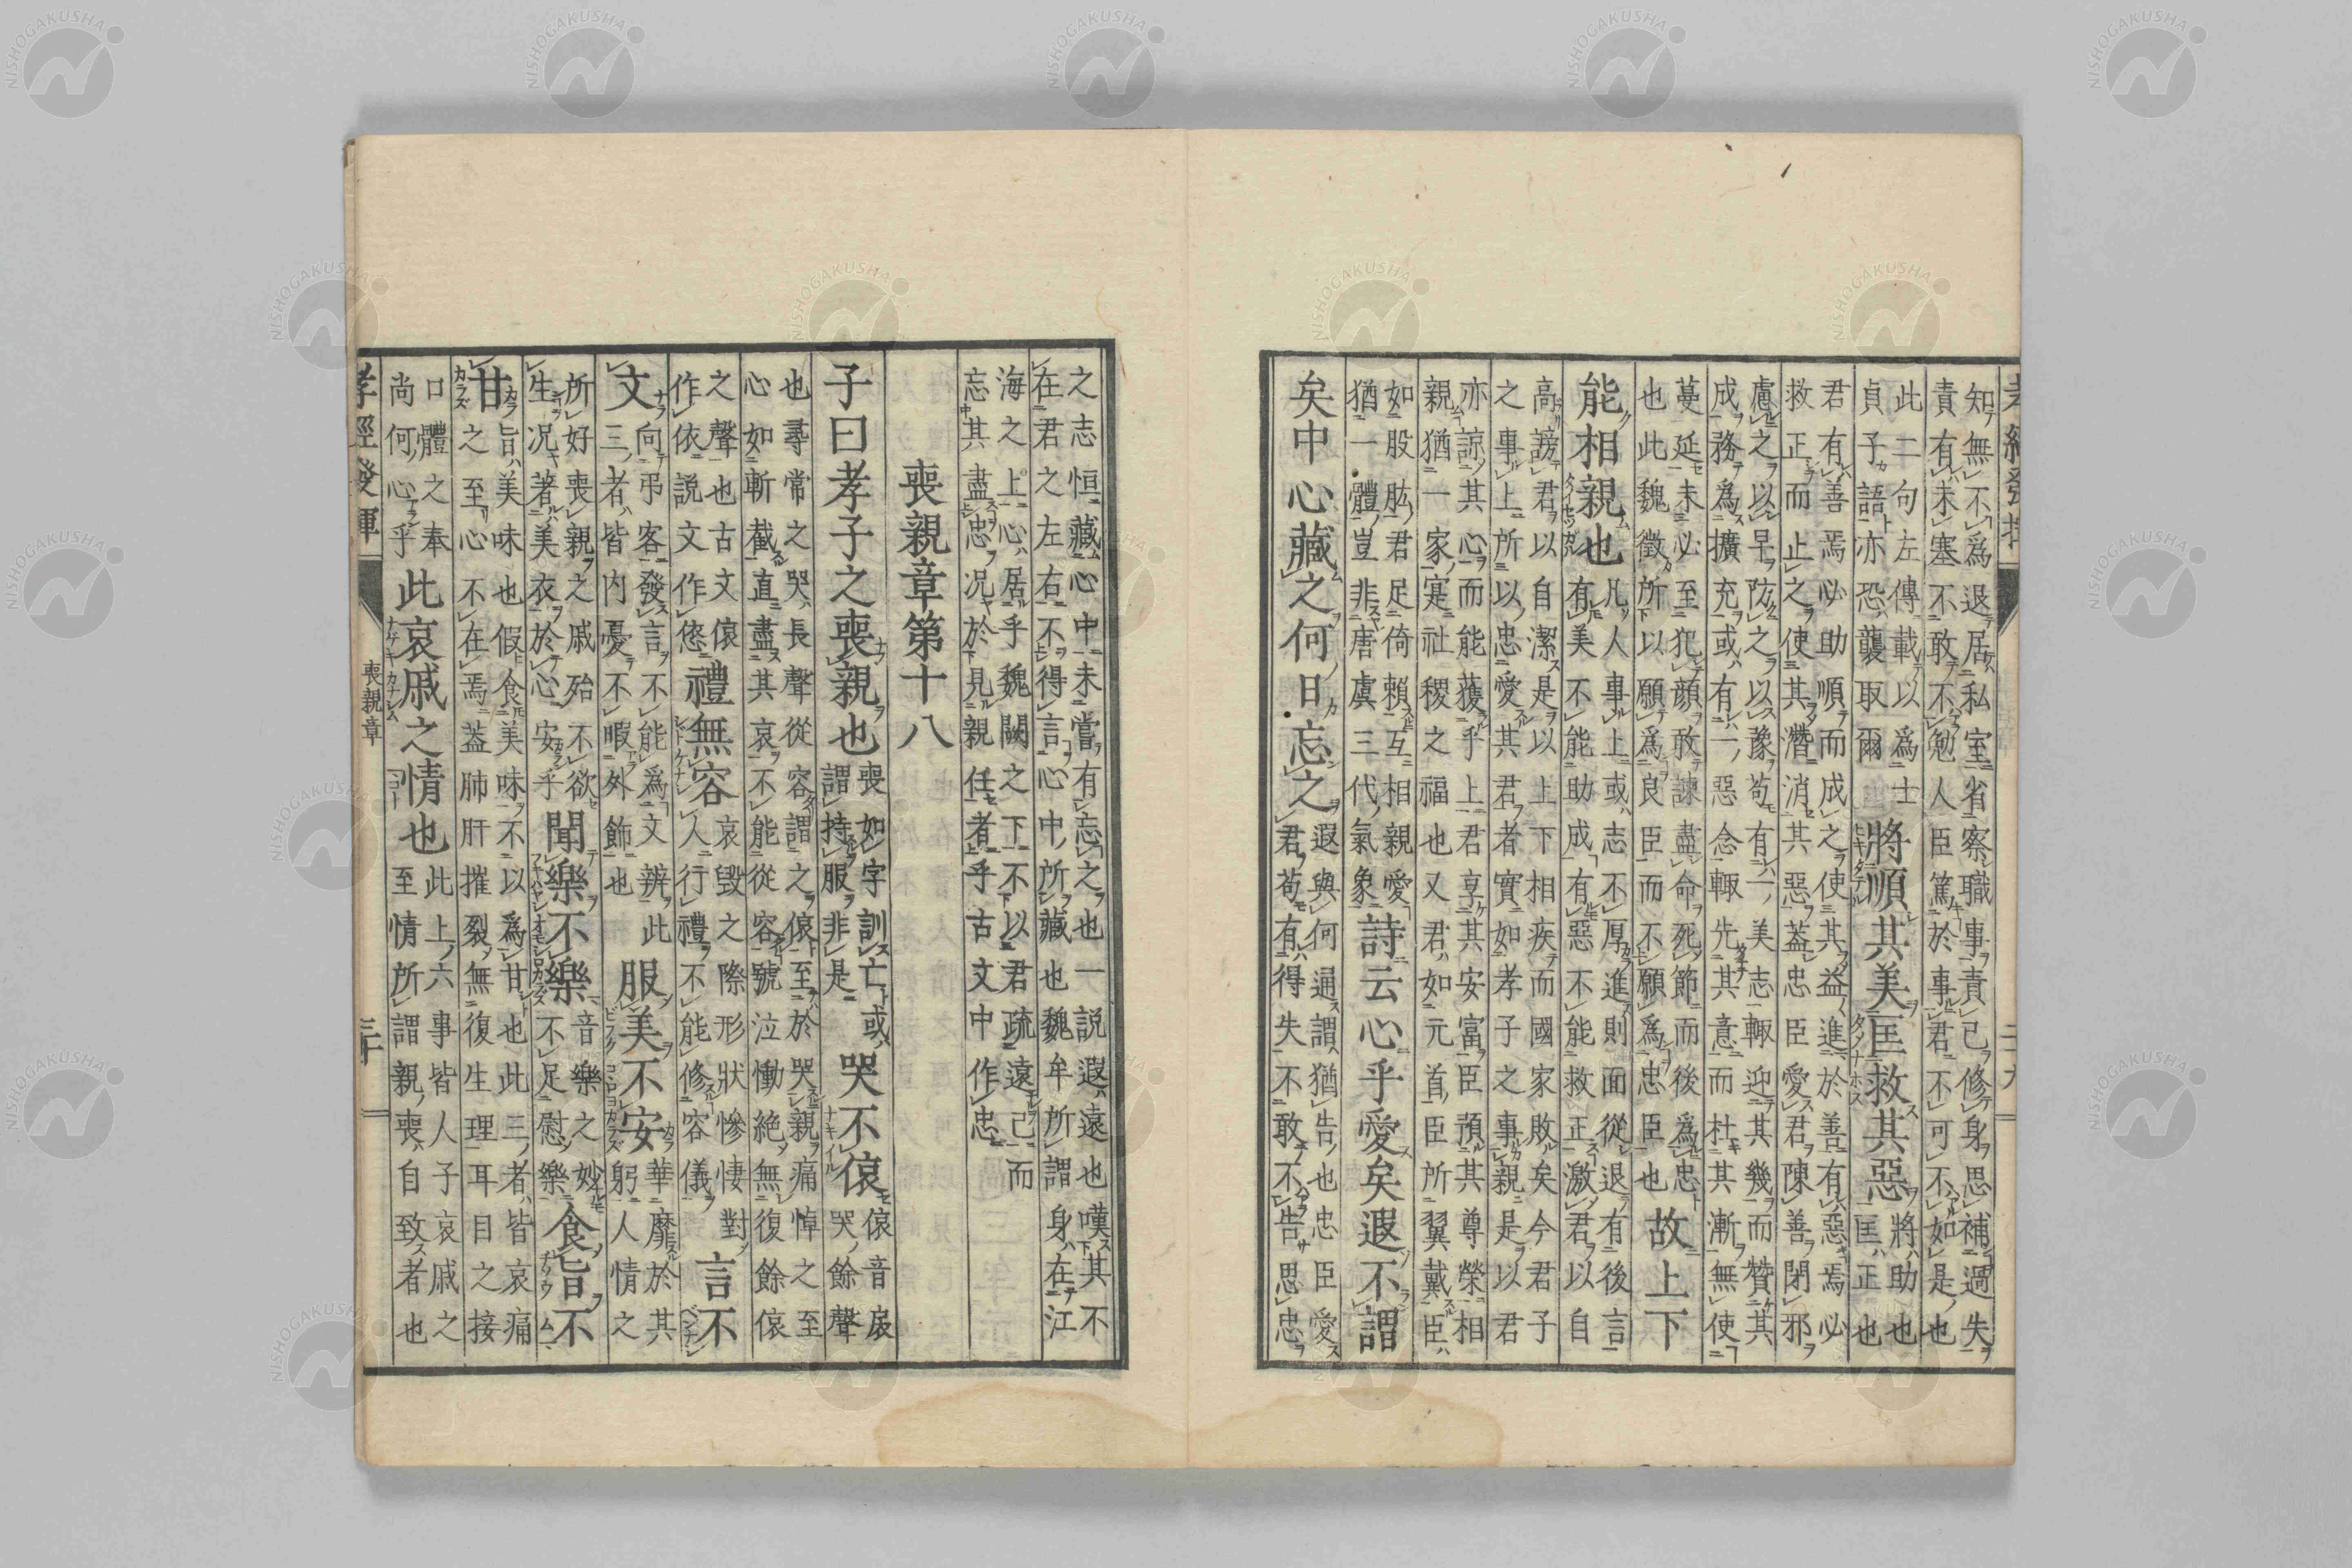 知無不爲退居私室省察職事責己修身思補過失
責有未塞不敢不勉人臣篤於事君不可不如是也
此二句左傳載以爲士
貞子語亦恐襲取爾
將順其美匡救其惡
將助也
匡正也
君有善焉必助順而成之使其益進於善有惡焉必
救正而止之使其潛消其惡蓋忠臣愛君陳善閉邪
慮之以早防之以豫苟有一美志輒迎其幾而贊其
成務爲擴充或有一惡念輒先其意而杜其漸無使
蔓延未必至犯顔敢諫盡命死節而後爲忠
也此魏徵所以願爲良臣而不願爲忠臣也
故上下
能相親也
凡人事上或志不厚進則面從退有後言
有美不能助成有惡不能救正激君以自
高謗君以自潔是以上下相疾而國家敗矣今君子
之事上所以忠愛其君者實如孝子之事親是以君
亦諒其心而能獲乎上君享其安富臣預其尊榮相
親猶一家寔社稷之福也又君如元首臣所翼戴臣
如股肱君足倚賴互相親愛
猶一體豈非唐虞三代氣象
詩云心乎愛矣遐不謂
矣中心藏之何日忘之
遐與何通謂猶告也忠臣愛
君苟有得失不敢不告思忠
之志恒藏心中未嘗有忘之也一説遐遠也嘆其不
在君之左右不得言心中所藏也魏牟所謂身在江
海之上心居乎魏闕之下不以君疏遠己而
忘其盡忠况於見親任者乎古文中作忠
喪親章第十八
子曰孝子之喪親也
喪如字訓亡或
謂持服非是
哭不偯
偯音扆
哭餘聲
也尋常之哭長聲從容謂之偯至於哭親痛悼之至
心如斬截直盡其哀不能從容號泣慟絶無復餘偯
之聲也古文偯
作依説文作㥋
禮無容
哀毀之際形狀慘悽對
人行禮不能修容儀
言不
文
向弔客發言不能爲文辨此
三者皆内憂不暇外飾也
服美不安
華靡於其
躬人情之
所好喪親之戚殆不欲
生况著美衣於心安乎
聞樂不樂
音樂之妙
不足慰樂
食旨不
甘
旨美味也假食美味不以爲甘也此三者皆哀痛
之至心不在焉蓋肺肝摧裂無復生理耳目之接
口體之奉
尚何心乎
此哀戚之情也
此上六事皆人子哀戚之
至情所謂親喪自致者也
孝經發揮
喪親章
三十